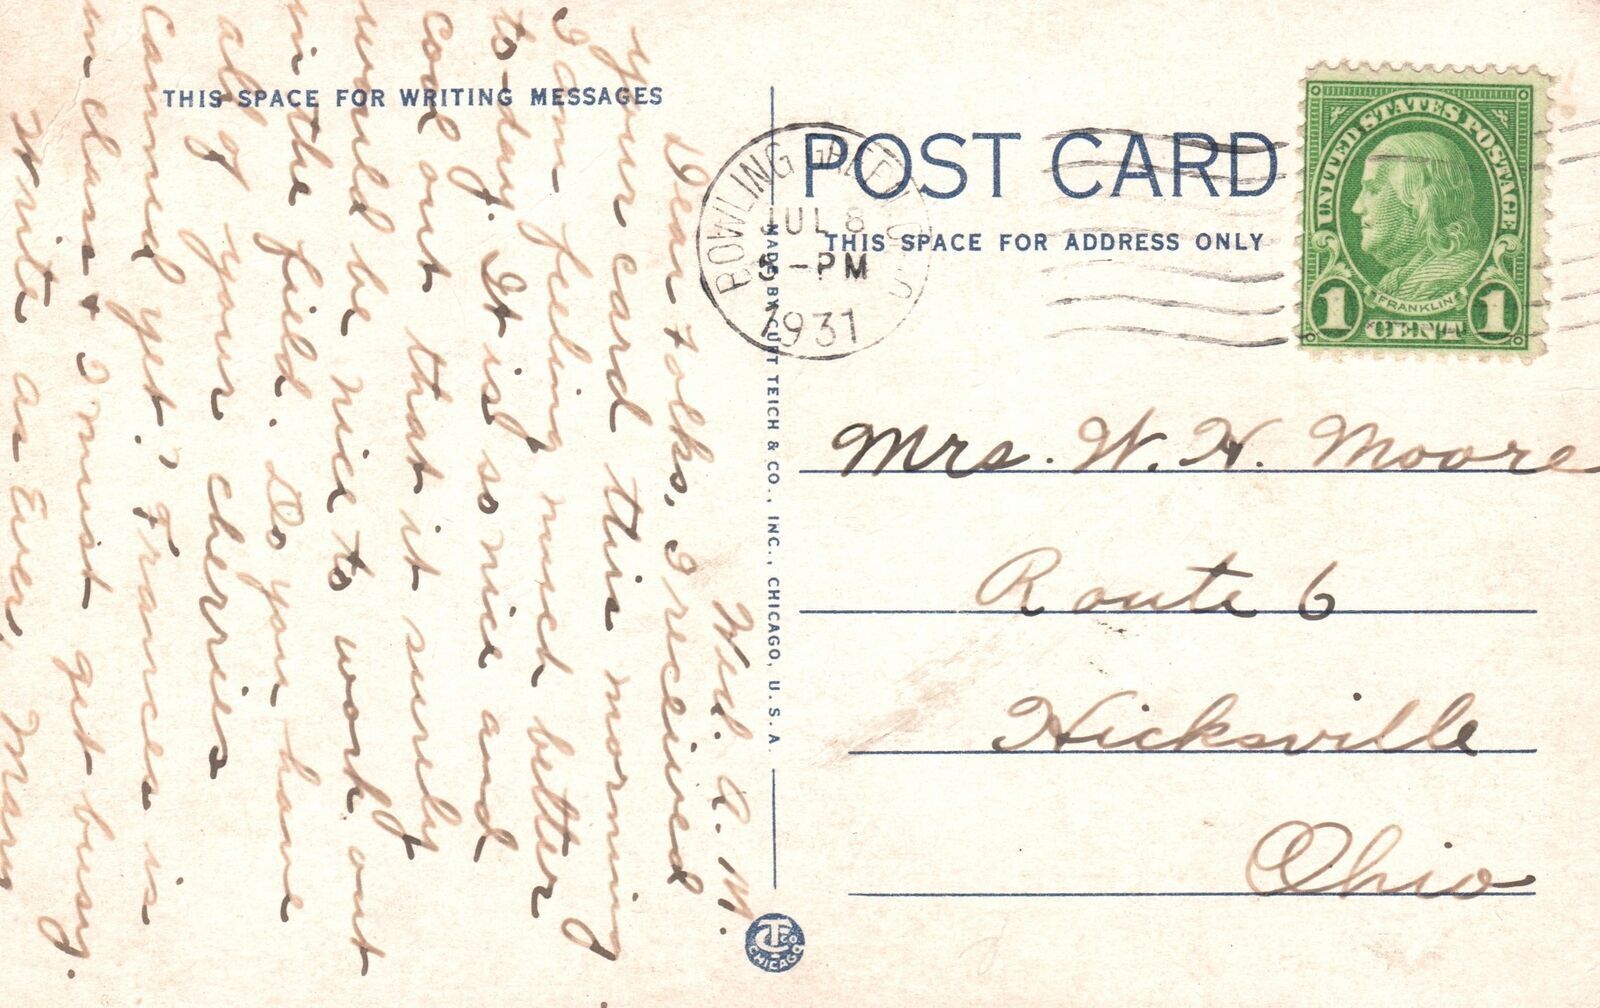 THIS SPACE FOR WRITING MESSAGES
Wed. A.M.
Dear Folks, I received
your card this morning
I am feeling much better
to-day. It is so nice and
cool out that it surely
would be nice to work out
in the field. Do you have
all of your cherries
canned yet? Frances is
in class & I must get busy.
Write as Ever, Mary
POST CARD
THIS SPACE FOR ADDRESS ONLY
BOWLING GREEN OHIO
JUL 8
5-PM
1931
UNITED STATES POSTAGE
FRANKLIN
1 CENT 1
MADE BY CURT TEICH & CO., INC., CHICAGO, U.S.A.
Mrs. W. H. Moore
Route 6
Hicksville
Ohio
CT CO
CHICAGO